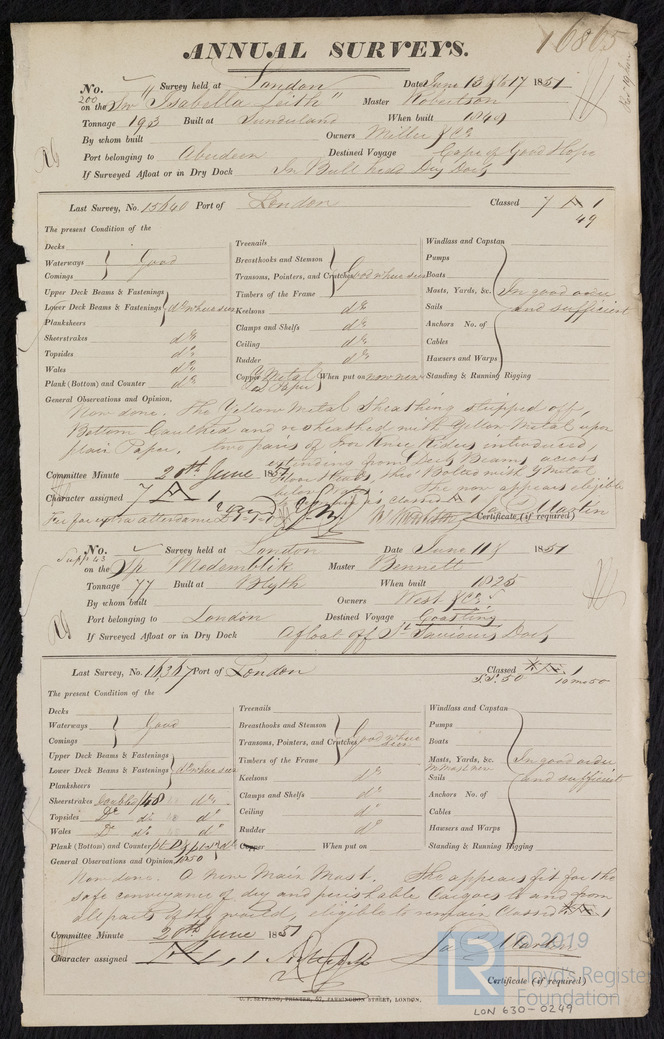 16865
ANNUAL SURVEYS.
No. Survey held at London Date June 13 & 17 1851
200 on the Sw "Isabella Leith" Master Robertson
Tonnage 193 Built at Sunderland When built 1849
By whom built Owners Miller & Co
Port belonging to Aberdeen Destined Voyage Cape of Good Hope
If Surveyed Afloat or in Dry Dock In Bull head Dry Dock
Last Survey, No. 15640 Port of London Classed 7 A 1
49
The present Condition of the
Decks
Waterways Good
Comings
Upper Deck Beams & Fastenings
Lower Deck Beams & Fastenings do where seen
Planksheers
Sheerstrakes do
Topsides do
Wales do
Plank (Bottom) and Counter do
Treenails
Breasthooks and Stemson
Transoms, Pointers, and Crutches Good where seen
Timbers of the Frame
Keelsons do
Clamps and Shelfs do
Ceiling do
Rudder do
Copper Y Metal When put on now new
Paper
Windlass and Capstan
Pumps
Boats
Masts, Yards, &c. In good order
Sails and sufficient
Anchors No. of
Cables
Hawsers and Warps
Standing & Running Rigging
General Observations and Opinion,
Now done. The Yellow Metal Sheathing stripped off,
Bottom Caulked and resheathed with Yellow Metal upon
plain Paper. two pairs of Iron Knee Riders introduced,
extending from Deck Beams across
Floor Heads, thro' Bolted with Y Metal
She now appears eligible
as classed A 1
Committee Minute 20th June 1851
Character assigned 7 A 1
Fee for extra attendance
Martin
Certificate (if required)
No. Survey held at London Date June 11 1851
Supp. 43 on the Sp Medemblik Master Bennett
Tonnage 77 Built at Blyth When built 1825
By whom built Owners West & Co
Port belonging to London Destined Voyage Coasting
If Surveyed Afloat or in Dry Dock Afloat off St Saviours Dock
Last Survey, No. 16367 Port of London Classed Æ 1
50 10 mo 50
The present Condition of the
Decks
Waterways Good
Comings
Upper Deck Beams & Fastenings
Lower Deck Beams & Fastenings do where seen
Planksheers
Sheerstrakes Doubled /48 do
Topsides Do do do
Wales Do do do
Plank (Bottom) and Counter
Treenails
Breasthooks and Stemson
Transoms, Pointers, and Crutches Good where seen
Timbers of the Frame
Keelsons do
Clamps and Shelfs do
Ceiling do
Rudder do
Copper When put on
Windlass and Capstan
Pumps
Boats
Masts, Yards, &c. In good order
M Mast new
Sails and sufficient
Anchors No. of
Cables
Hawsers and Warps
Standing & Running Rigging
General Observations and Opinion,
Now done. A New Main Mast. She appears fit for the
safe conveyance of dry and perishable Cargoes to and from
all parts of the world, eligible to remain Classed Æ 1
Committee Minute 20th June 1851
Character assigned Æ 1
Jas Martin
Certificate (if required)
PRINTER, 57, FARRINGDON STREET, LONDON.
© 2019
LR
Lloyd's Register
Foundation
LON 630-0249